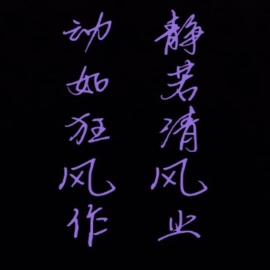 静若清风业
动如狂风作